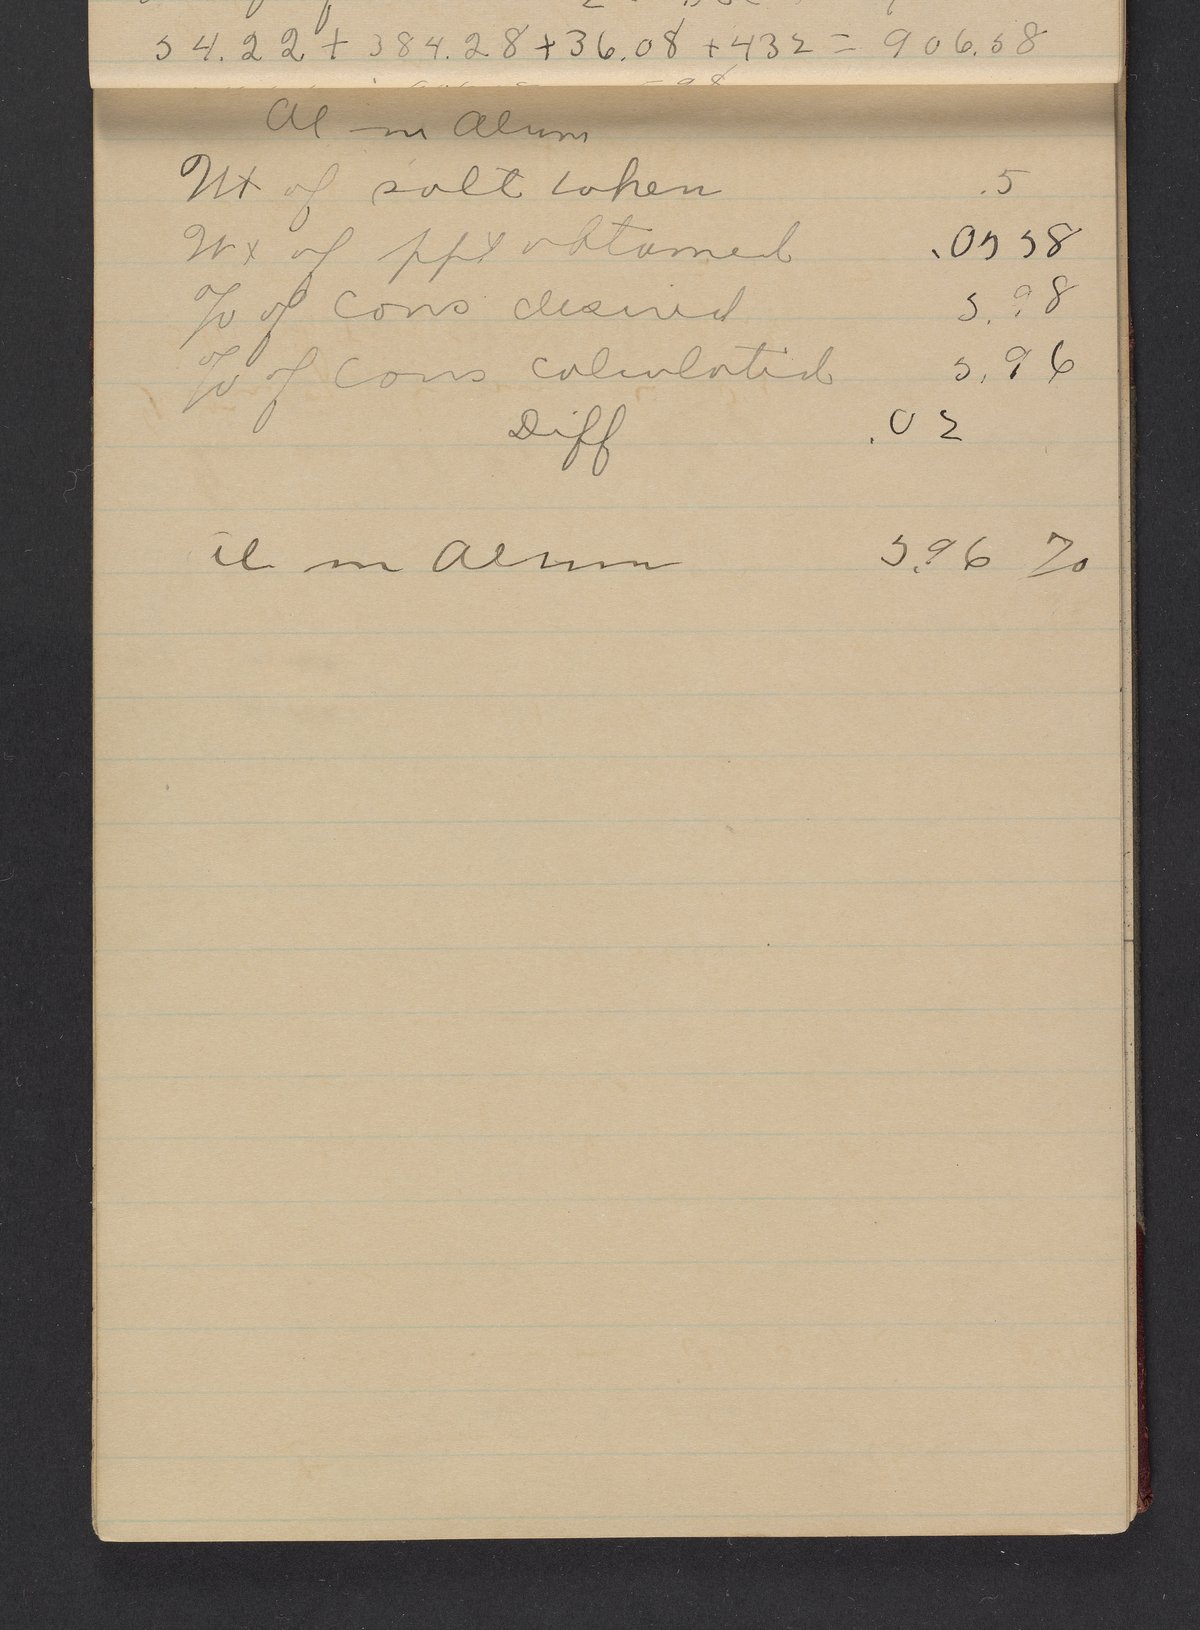 54.22 + 384.28 + 36.08 + 432 = 906.58
Al in Alum
Wt of salt taken .5
Wt of ppt obtained .0558
% of cons desired 5.98
% of cons calculated 5.96
Diff .02
Al in Alum 5.96 %